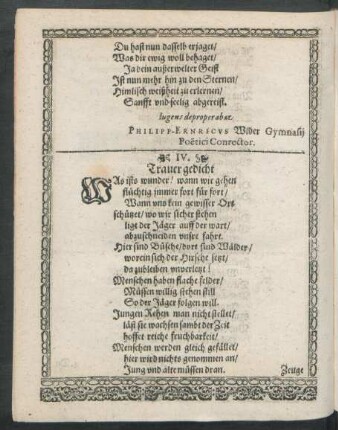 Du hast nun dasselb erjaget/
Was dir ewig woll behaget/
Ja dein außerwelter Geist
Ist nun mehr hin zu den Sternen/
Himlisch weißheit zu erlernen/
Sanfft vnd seelig abgereist.
lugens deproperabat.
PHILIPP-ERNRICVS Wider Gymnasij
Poëtici Conrector.
IV.
Trauergedicht
WAs ists wunder? wann wir gehen
flüchtig immer fort für fort/
Wann vns kein gewisser Ort
schützet/ wo wir sicher stehen
ligt der Jäger auff der wart/
abzuschneiden vnsre fahrt.
Hier sind Büsche/ dort sind Wälder/
worein sich der Hirsche setzt/
da zubleiben vnverletzt!
Menschen haben flache felder/
Müssen willig stehen still
So der Jäger folgen will.
Jungen Rehen man nicht stellet/
läst sie wachsen sambt der Zeit
hoffet reiche fruchbarkeit/
Menschen werden gleich gefället/
hier wird nichts genommen an/
Jung vnd alte müssen dran.
Zeuge